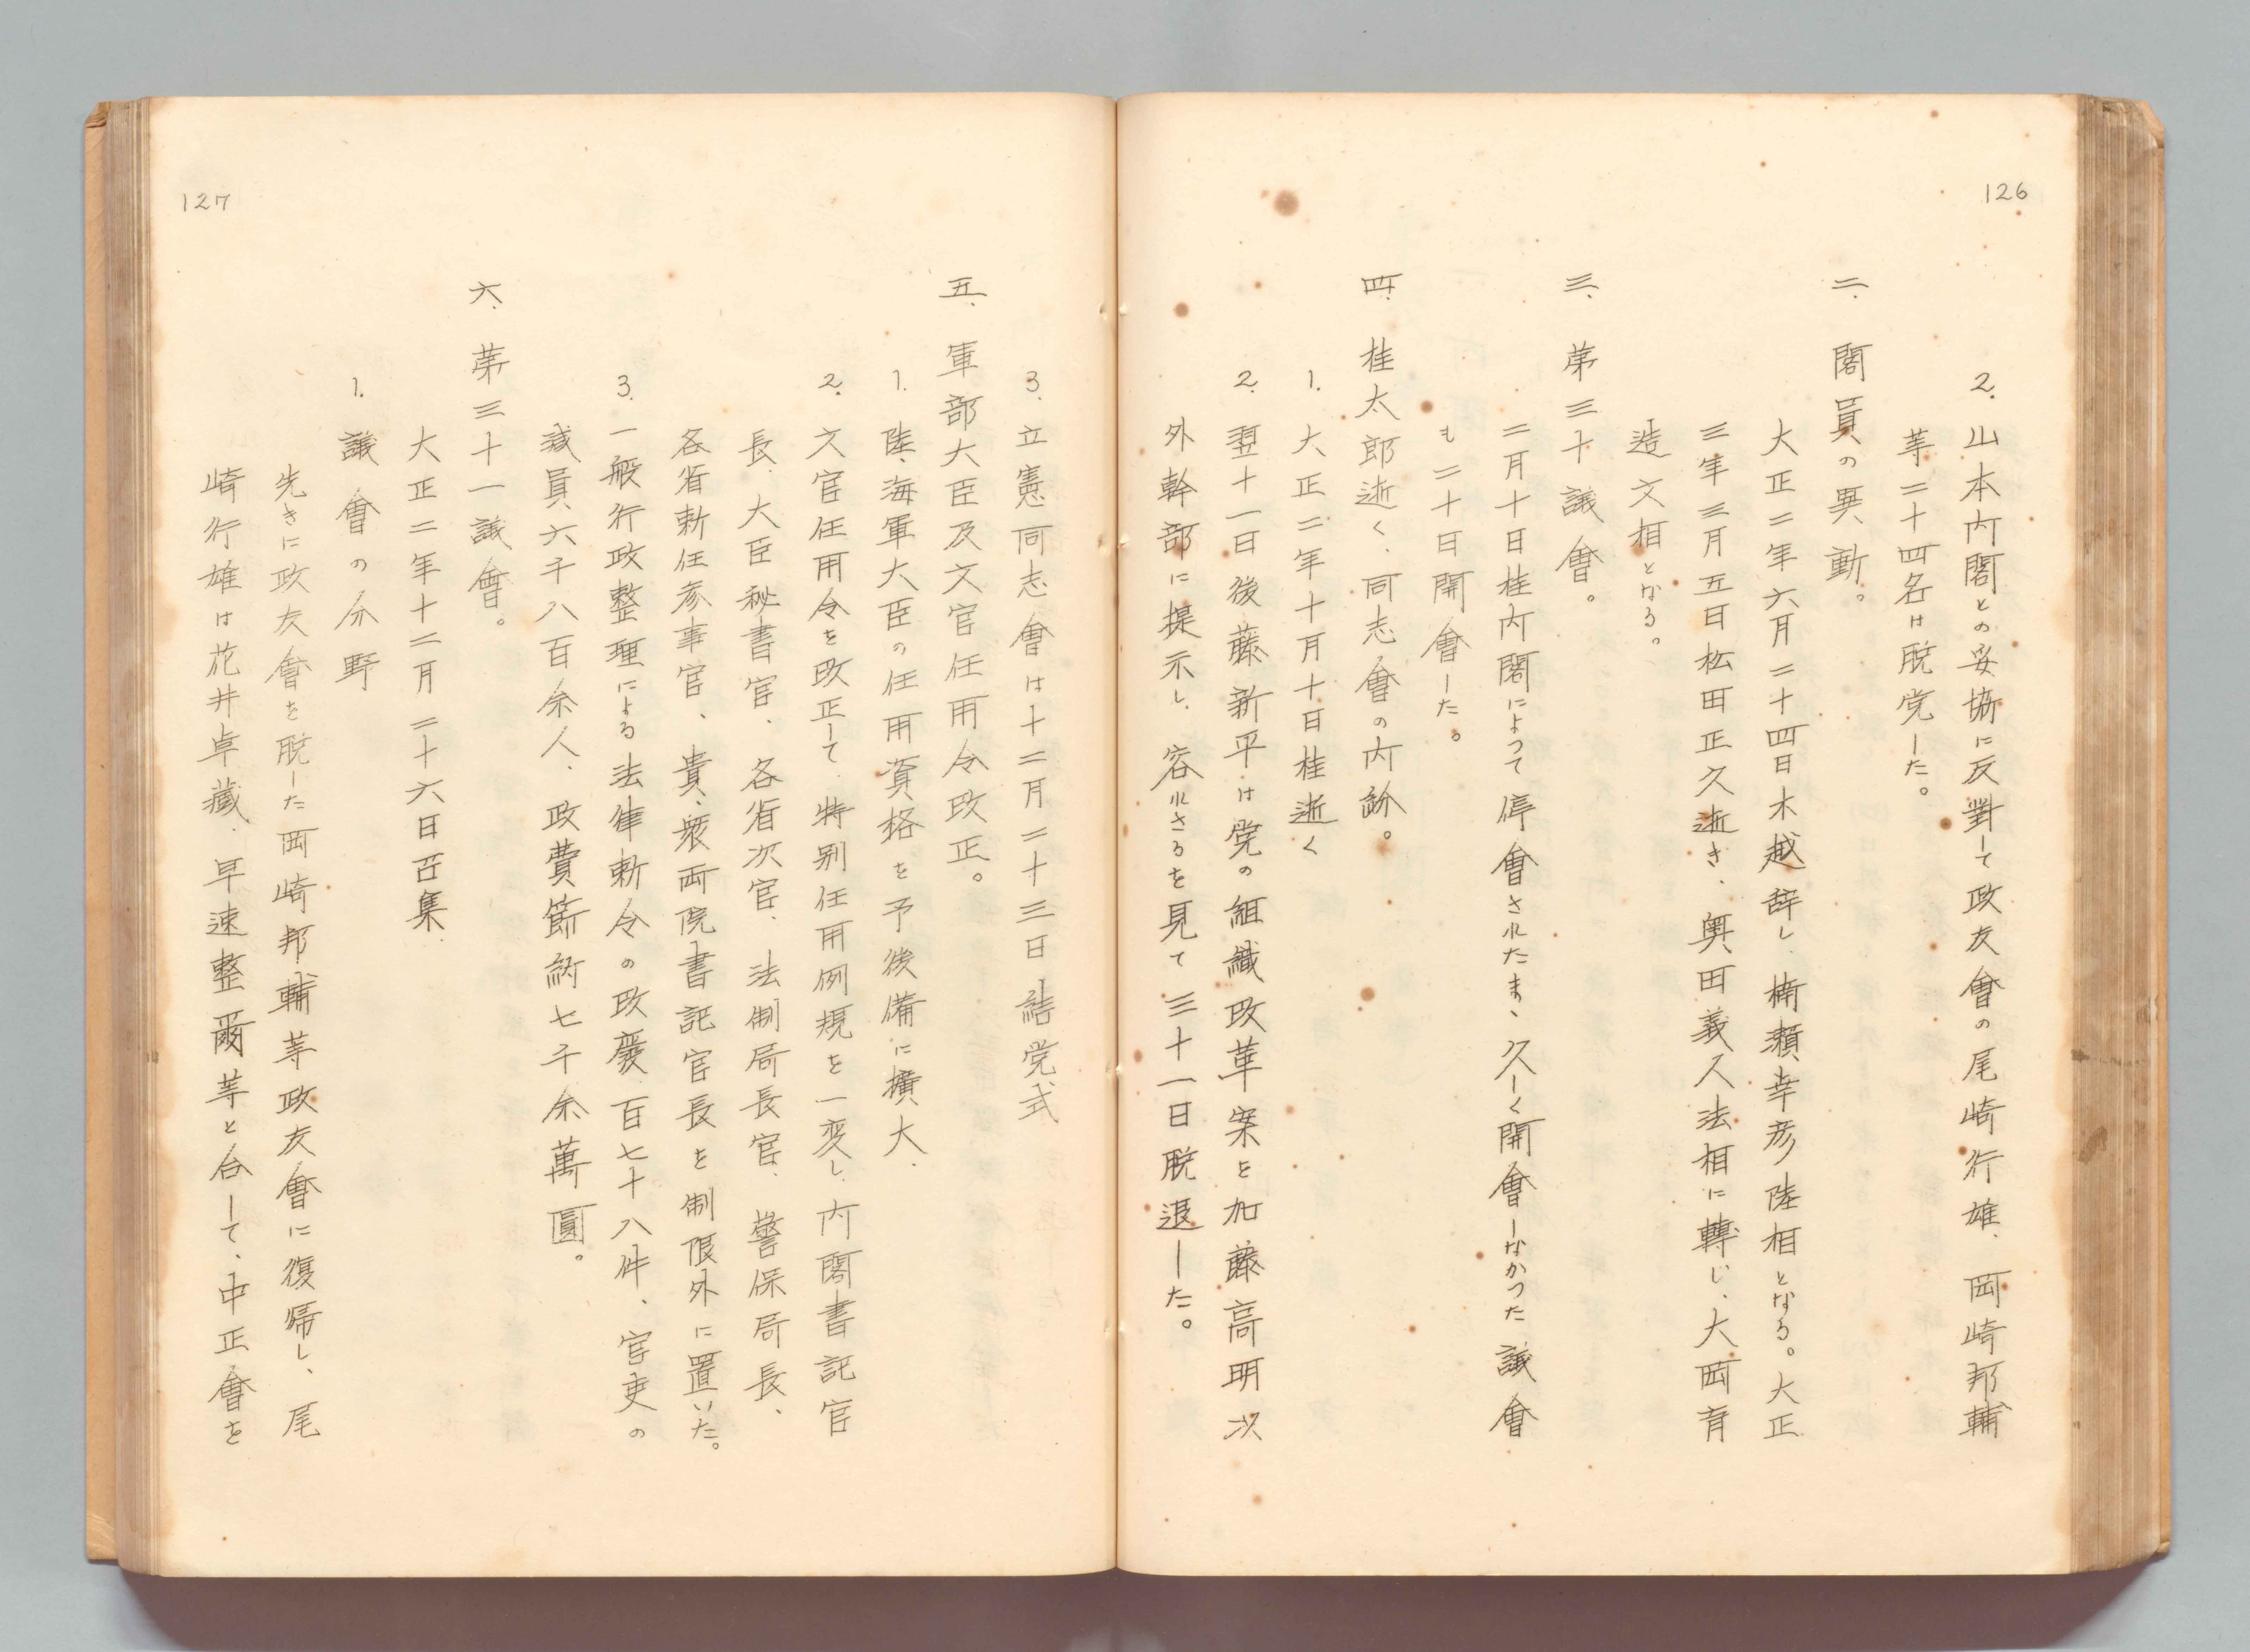 126
2. 山本内閣との妥協に反對して政友會の尾崎行雄、岡崎邦輔
等二十四名は脱党した。
二、閣員の異動。
大正二年六月二十四日木越辞し、楠瀬幸彦陸相となる。大正
三年三月五日松田正久逝き、奥田義人法相に轉じ、大岡育
造文相となる。
三、第三十議會。
二月十日桂内閣によつて停會されたまゝ、久しく開會しなかつた議會
も二十日開會した。
四、桂太郎逝く、同志會の内紛。
1. 大正二年十月十日桂逝く
2. 翌十一日後藤新平は党の組織改革案を加藤高明次
外幹部に提示し、容れざるを見て三十一日脱退した。
3. 立憲同志會は十二月二十三日結党式
五、軍部大臣及文官任用令改正。
1. 陸、海軍大臣の任用資格を予後備に擴大、
2. 文官任用令を改正して、特別任用例規を一変し、内閣書記官
長、大臣秘書官、各省次官、法制局長官、警保局長、
各省勅任参事官、貴、衆両院書記官長を制限外に置いた。
3. 一般行政整理による法律勅令の改廢百七十八件、官吏の
減員、六千八百余人、政費節約七千余萬圓。
六、第三十一議會。
大正二年十二月二十六日召集
1. 議會の分野
先きに政友會を脱した岡崎邦輔等政友會に復帰し、尾
崎行雄は花井卓藏、早速整爾等と合して、中正會を
127